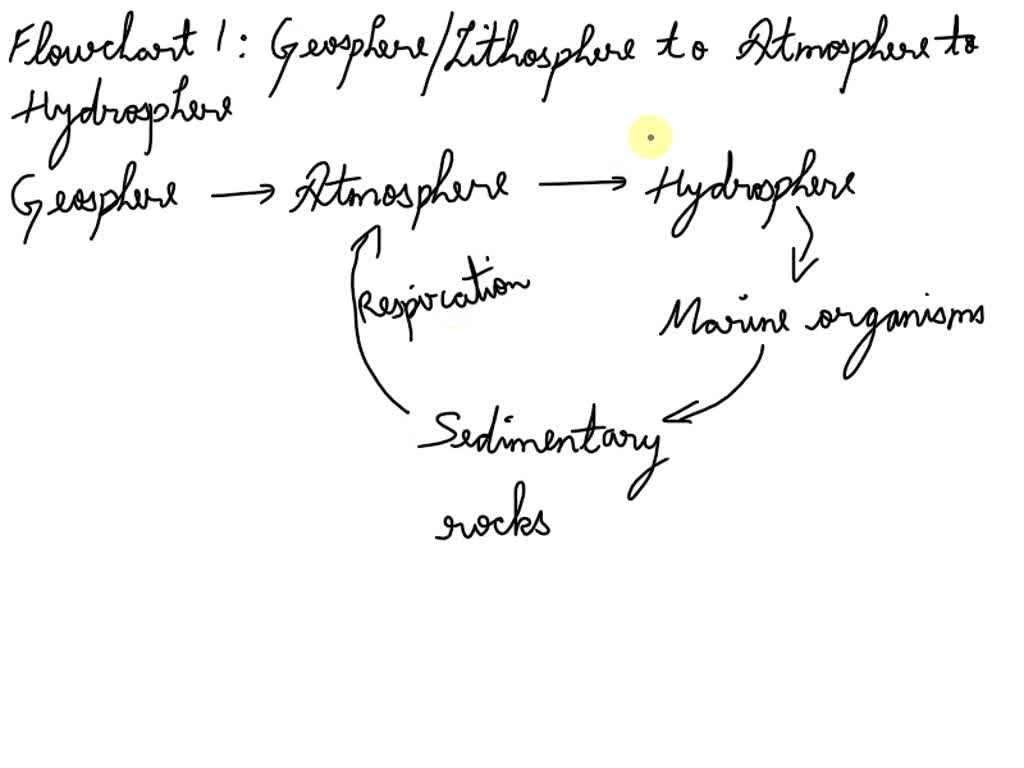 Flowchart 1: Geosphere/Lithosphere to Atmosphere to
Hydrosphere
Geosphere → Atmosphere → Hydrosphere
Respiration
Marine organisms
Sedimentary
rocks